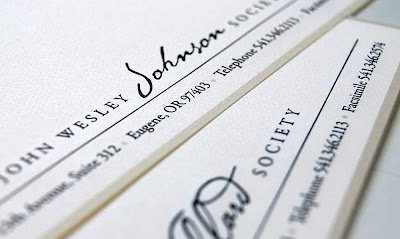 JOHN WESLEY Johnson SOCIETY
13th Avenue, Suite 312 • Eugene, OR 97403 • Telephone 541.346.2113 • Facsimile
SOCIETY
Telephone 541.346.2113 • Facsimile 541.346.2574